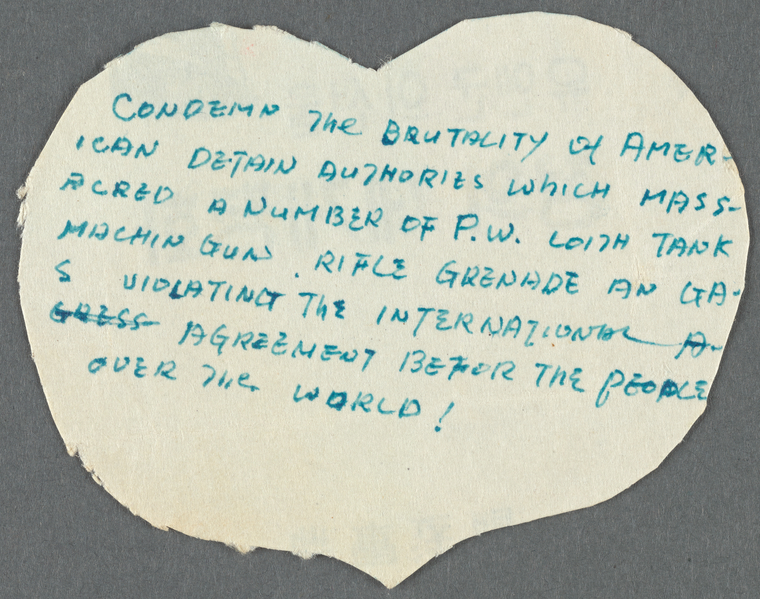 CONDEMN The BRUTALITY of AMER-
ICAN DETAIN AUTHORIES WHICH MASS-
ACRED A NUMBER OF P.W. WITH TANK
MACHIN GUN. RIFLE GRENADE AN GA-
S VIOLATING THE INTERNATIONAL A-
GRESS AGREEMENT BEFOR THE PEOPLE
OVER The WORLD!